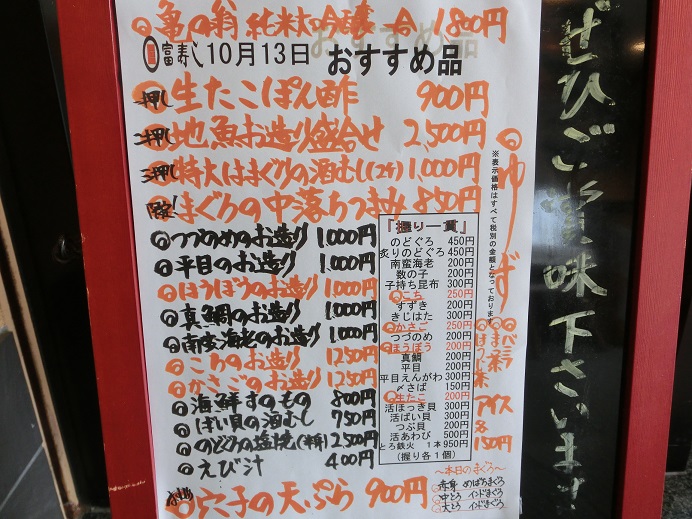 亀の翁 純米大吟醸 一合 1,800円
富寿し 10月13日 おすすめ品
一押し 生たこぽん酢 900円
二押し 地魚お造り盛合せ 2,500円
三押し 特大はまぐりの酒むし(2ケ) 1,000円
まぐろの中落ちつまみ 850円
◎つづのめのお造り 1,000円
◎平目のお造り 1,000円
◎ほうぼうのお造り 1,000円
◎真鯛のお造り 1,000円
◎南蛮海老のお造り 1,000円
◎こちのお造り 1250円
◎かさごのお造り 1250円
◎海鮮すのもの 800円
◎ばい貝の酒むし 750円
◎のどぐろの塩焼(半身) 2500円
◎えび汁 400円
◎穴子の天ぷら 900円
「握り一貫」
のどぐろ 450円
炙りのどぐろ 450円
南蛮海老 200円
数の子 200円
子持ち昆布 300円
◎こち 250円
すずき 200円
きじはた 300円
◎かさご 250円
つづのめ 200円
◎ほうぼう 200円
真鯛 200円
平目 200円
平目えんがわ 300円
〆さば 150円
◎生たこ 200円
活ほっき貝 300円
活ばい貝 300円
つぶ貝 200円
活あわび 500円
とろ鉄火 1本950円
(握り各1個)
※表示価格はすべて税別の金額となっております
◎ゆず
◎バニラ
◎まっ茶
◎ほうじ茶
アイス
各
150円
～本日のまぐろ～
◎赤身 めばちまぐろ
◎中とろ インドまぐろ
◎大とろ インドまぐろ
ぜひご賞味下さいませ